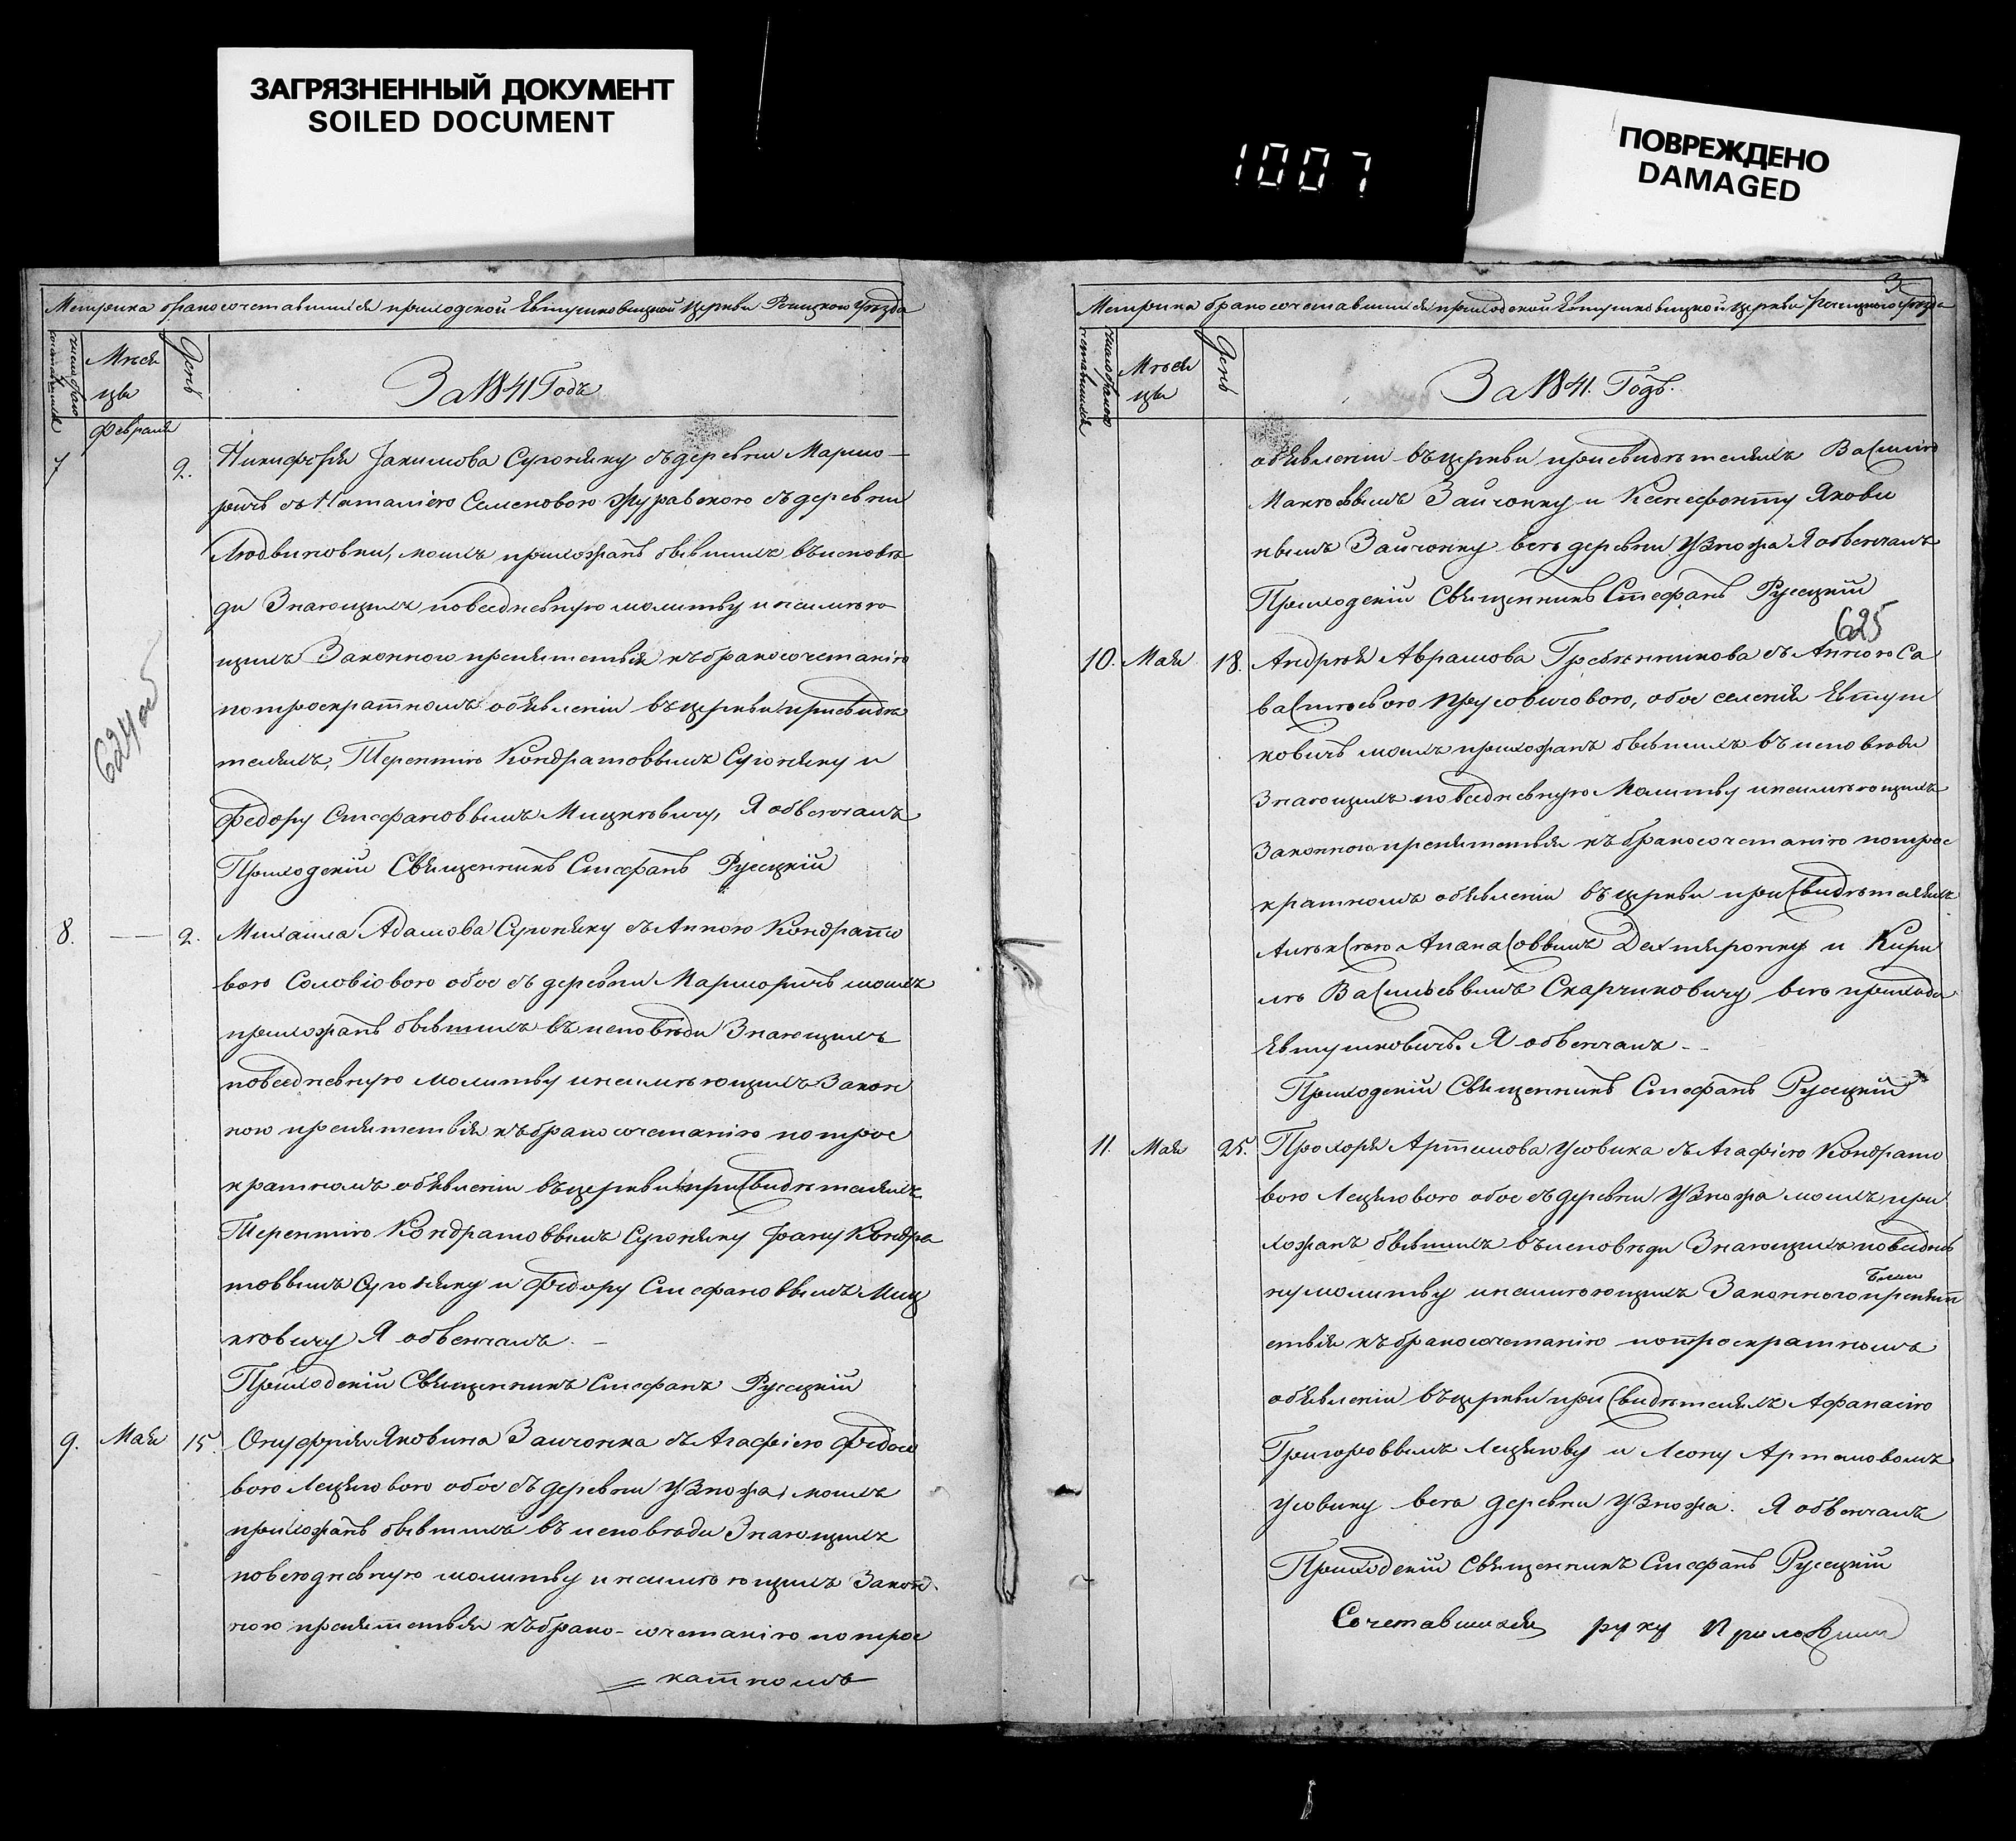 ЗАГРЯЗНЕННЫЙ ДОКУМЕНТ
SOILED DOCUMENT
1007
ПОВРЕЖДЕНО
DAMAGED
Метрика бракосочетавшихся приходской Евтушковицкой церкви Речицкого уѣзда
Мѣся
цы
День
За 1841 Годъ
Февраля
7
9.
Никифора Іакимова Сугоняку съ деревни Мармо-
ричъ съ Наталіею Семеновою Журавскою съ деревни
Людвиновки, моихъ прихожанъ бывшихъ въ исповѣ-
ди Знающихъ повседневную молитву и неимѣю-
щихъ Законного препятствія къ бракосочетанію
по троекратномъ объявленіи въ церкви при свидѣ
теляхъ, Терентію Кондратоввымъ Сугоняку и
Федору Стефановвымъ Мицкевичу, Я обвенчалъ
Приходскій Священникъ Стефанъ Русецкій
624об
8.
9.
Михаила Адамова Сугоняку съ Анною Кондрато
вою Соловіовою обое съ деревни Марморичъ моихъ
прихожанъ бывшихъ въ исповѣди Знающихъ
повседневную молитву и неимѣющихъ Закон
ного препятствія къ бракосочетанію по трое
кратномъ объявленіи въ церкви при Свидѣтеляхъ
Терентію Кондратоввымъ Сугоняку Іоану Кондра
товвымъ Сугоняку и Федору Стефановвымъ Миц
кевичу Я обвенчалъ.
Приходскій Священникъ Стефанъ Русецкій
9.
Мая
15.
Онуфрия Яковина Заичонка съ Агафіею Федосо
вою Лещаговою обое съ деревни Узножа, моихъ
прихожанъ бывшихъ въ исповѣди Знающихъ
повсюдневную молитву и неимѣющихъ Закон
ного препятствія къ брако-сочетанію по трое
= катномъ
3
Метрика бракосочетавшихся приходской Евтушковицкой церкви Речицкого уѣзда
Мѣся
цы
День
За 1841. Годъ.
объявленіи въ церкви при свидѣтеляхъ Василію
Зайчонку и Ксенефонту Якови
нвымъ Зайчонку всѣ деревни Узножа Я обвенчалъ
Приходскій Священникъ Стефанъ Русецкій
625
10.
Мая
18.
Андрѣя Аврамова Гребенникова съ Анною Са
обое селенія Евтуш
ковичъ моихъ прихожанъ бывшихъ въ исповѣди
Знающихъ повседневную Молитву и неимѣющихъ
Законного препятствія къ бракосочетанію по трое
кратномъ объявленіи въ церкви при Свидѣтеляхъ
Алѣксѣю Апанасоввымъ Дехтяронку и Кири
лѣ Васильеввымъ Скарчиковичу, всѣ прихода
Евтушковичъ. Я обвенчалъ
Приходскій Священникъ Стефанъ Русецкій
11.
Мая
25.
Прохора Артемова Усовика съ Агафіею Кондрато
вою Лещаговою обое съ деревни Узножа моихъ при
хожанъ бывшихъ въ исповѣди Знающихъ повседнев
ну молитву и неимѣющихъ Законного препят
ствія къ бракосочетанію по троекратномъ
объявленіи въ церкви при Свидѣтеляхъ Афанасію
Григоровымъ Лещагову и Леону Артемовомъ
Усовику всѣ деревни Узножа. Я обвенчалъ
Приходскій Священникъ Стефанъ Русецкій
Сочетавшихся руку приложили